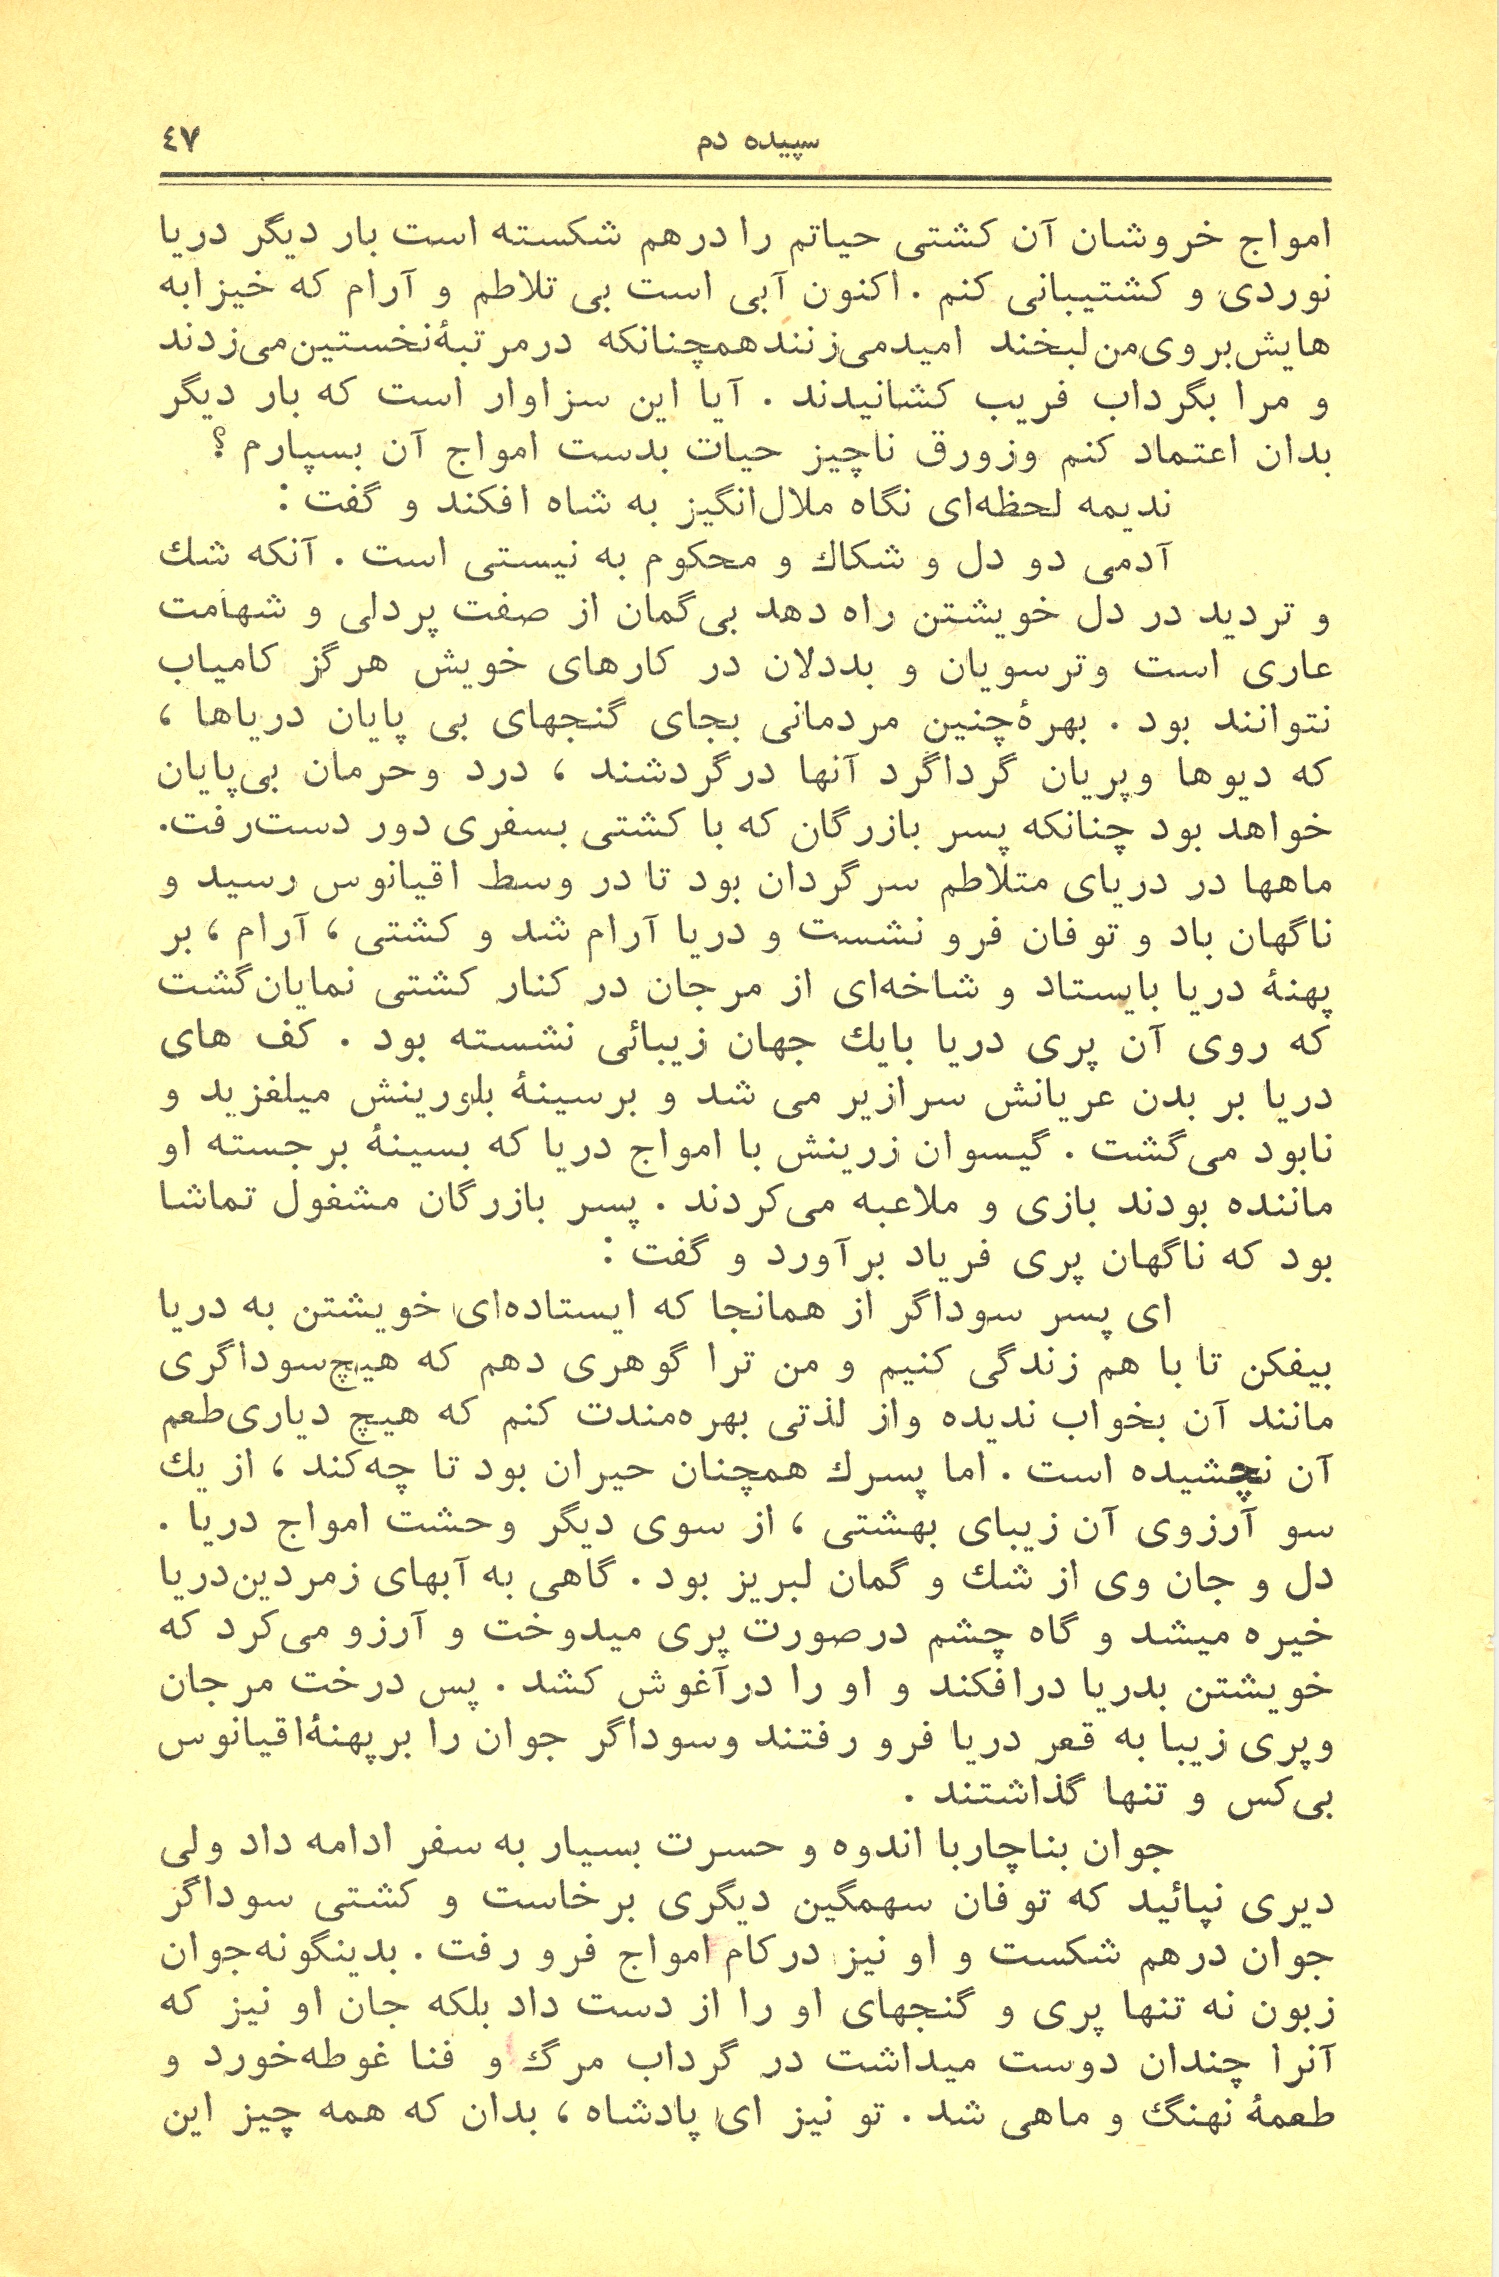 سپیده دم ٤٧
امواج خروشان آن کشتی حیاتم را درهم شکسته است بار دیگر دریا
نوردی و کشتیبانی کنم . اکنون آبی است بی تلاطم و آرام که خیزابه
هایش بروی من لبخند امید می‌زنند همچنانکه در مرتبهٔ نخستین می‌زدند
و مرا بگرداب فریب کشانیدند . آیا این سزاوار است که بار دیگر
بدان اعتماد کنم وزورق ناچیز حیات بدست امواج آن بسپارم ؟
ندیمه لحظه‌ای نگاه ملال‌انگیز به شاه افکند و گفت :
آدمی دو دل و شکاك و محکوم به نیستی است . آنکه شك
و تردید در دل خویشتن راه دهد بی‌گمان از صفت پردلی و شهامت
عاری است وترسویان و بددلان در کارهای خویش هرگز کامیاب
نتوانند بود . بهرهٔ چنین مردمانی بجای گنجهای بی پایان دریاها ،
که دیوها وپریان گرداگرد آنها درگردشند ، درد وحرمان بی‌پایان
خواهد بود چنانکه پسر بازرگان که با کشتی بسفری دور دست‌رفت.
ماهها در دریای متلاطم سرگردان بود تا در وسط اقیانوس رسید و
ناگهان باد و توفان فرو نشست و دریا آرام شد و کشتی ، آرام ، بر
پهنهٔ دریا بایستاد و شاخه‌ای از مرجان در کنار کشتی نمایان‌گشت
که روی آن پری دریا بایك جهان زیبائی نشسته بود . کف های
دریا بر بدن عریانش سرازیر می شد و برسینهٔ بلورینش میلغزید و
نابود می‌گشت . گیسوان زرینش با امواج دریا که بسینهٔ برجسته او
ماننده بودند بازی و ملاعبه می‌کردند . پسر بازرگان مشغول تماشا
بود که ناگهان پری فریاد برآورد و گفت :
ای پسر سوداگر از همانجا که ایستاده‌ای خویشتن به دریا
بیفکن تا با هم زندگی کنیم و من ترا گوهری دهم که هیچ‌سوداگری
مانند آن بخواب ندیده واز لذتی بهره‌مندت کنم که هیچ دیاری‌طعم
آن نچشیده است . اما پسرك همچنان حیران بود تا چه‌کند ، از یك
سو آرزوی آن زیبای بهشتی ، از سوی دیگر وحشت امواج دریا .
دل و جان وی از شك و گمان لبریز بود . گاهی به آبهای زمردین‌دریا
خیره میشد و گاه چشم درصورت پری میدوخت و آرزو می‌کرد که
خویشتن بدریا درافکند و او را درآغوش کشد . پس درخت مرجان
وپری زیبا به قعر دریا فرو رفتند وسوداگر جوان را برپهنهٔ‌اقیانوس
بی‌کس و تنها گذاشتند .
جوان بناچاربا اندوه و حسرت بسیار به سفر ادامه داد ولی
دیری نپائید که توفان سهمگین دیگری برخاست و کشتی سوداگر
جوان درهم شکست و او نیز درکام امواج فرو رفت . بدینگونه‌جوان
زبون نه تنها پری و گنجهای او را از دست داد بلکه جان او نیز که
آنرا چندان دوست میداشت در گرداب مرگ و فنا غوطه‌خورد و
طعمهٔ نهنگ و ماهی شد . تو نیز ای پادشاه ، بدان که همه چیز این